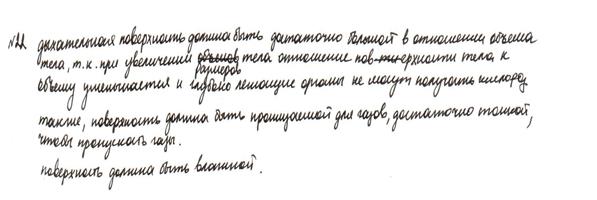 №22 дыхательная поверхность должна быть достаточно большой в отношении объема
тела, т.к. при увеличении объемов размеров тела отношение поверхности тела к
объему уменьшается и глубоко лежащие органы не могут получать кислород
также, поверхность должна быть проницаемой для газов, достаточно тонкой,
чтобы пропускать газы.
поверхность должна быть влажной.